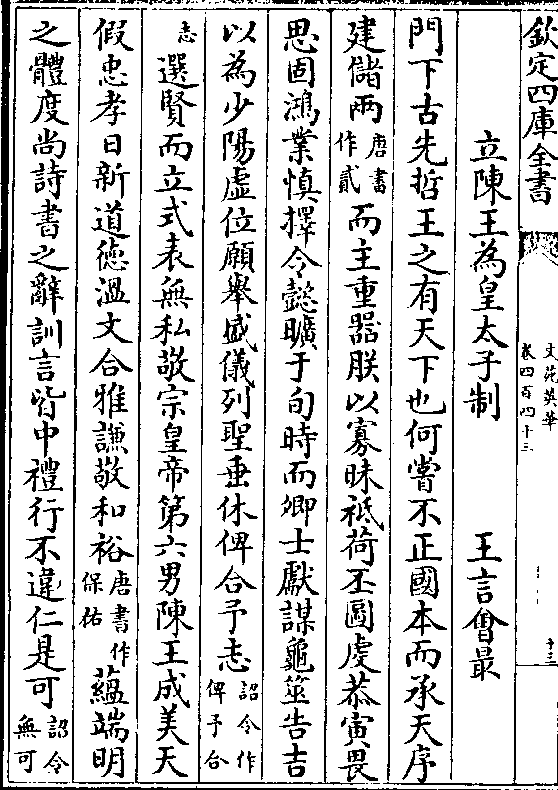 欽定四庫全書
文苑英華
卷四百四十三
十三
立陳王為皇太子制 王言會最
門下古先哲王之有天下也何嘗不正國本而承天序
建儲兩唐書作貳而主重器朕以寡昧祗荷丕圖虔恭寅畏
思固鴻業慎擇令懿曠于旬時而卿士獻謀龜筮告吉
以為少陽虛位願舉盛儀列聖垂休俾合予志詔令作俾予合
志選賢而立式表無私敬宗皇帝第六男陳王成美天
假忠孝日新道德溫文合雅謙敬和裕唐書作保祐蘊端明
之體度尚詩書之辭訓言皆中禮行不違仁是可詔令無可